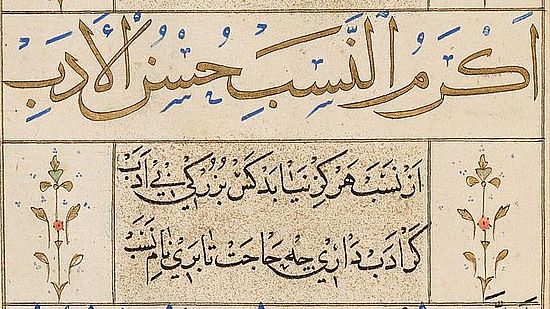 اَكْرَمُ النَّسَبِ حُسْنُ الْاَدَبِ
از نسب هرکز نیابد کس بزرکی بی ادب
کر ادب داری چه حاجت تا بری نام نسب